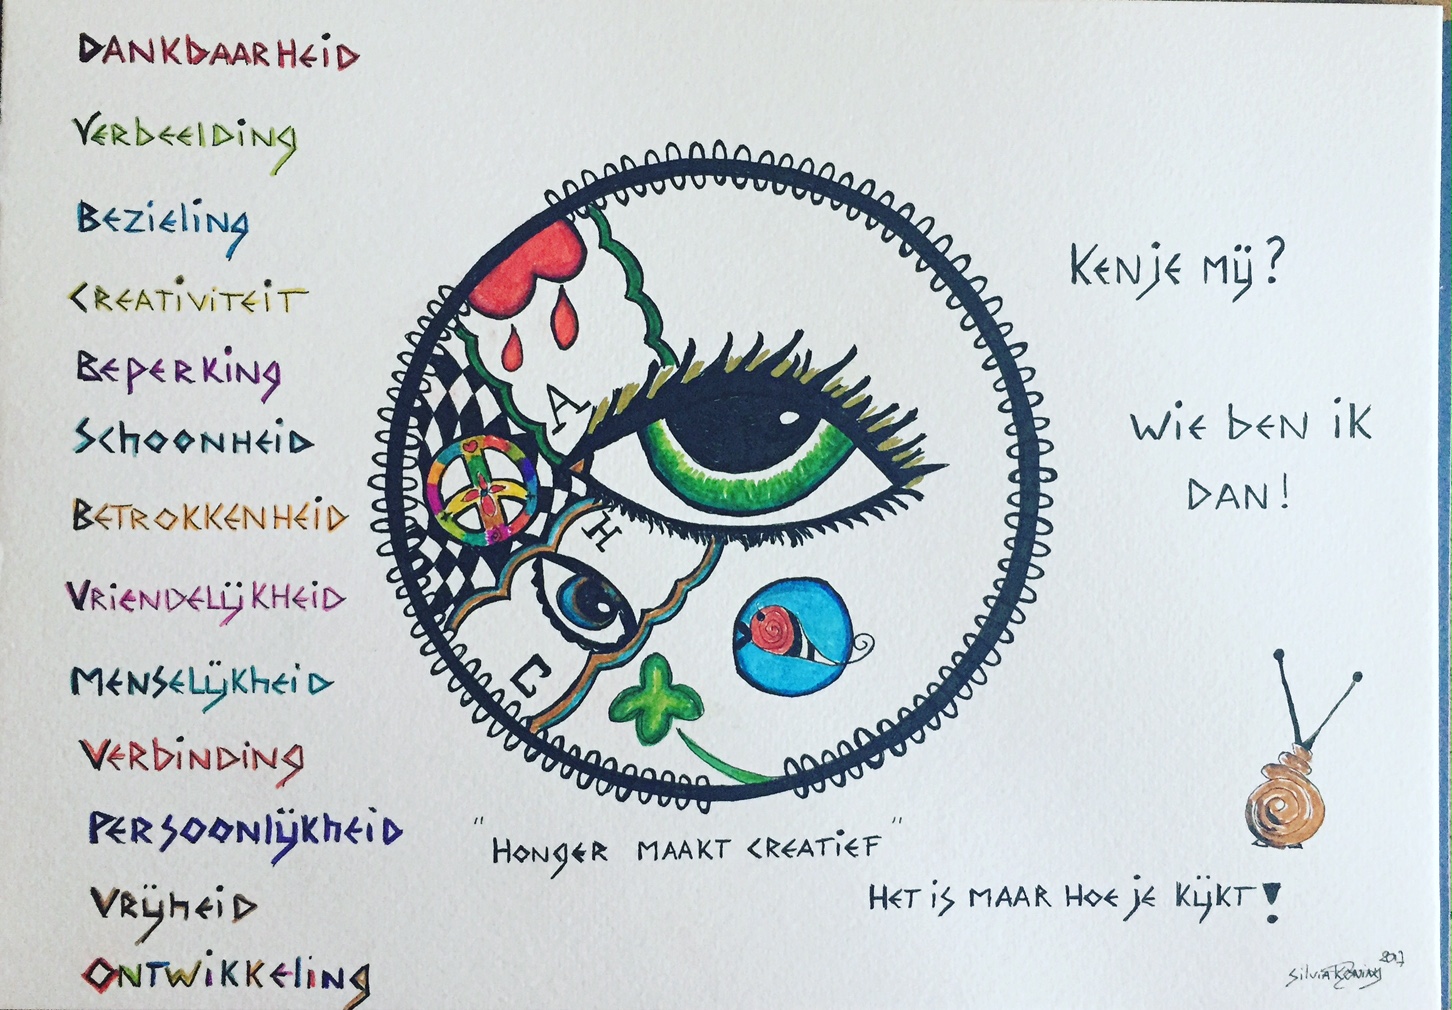 DANKBAARHEID
VERBEELDING
BEZIELING
CREATIVITEIT
BEPERKING
SCHOONHEID
BETROKKENHEID
VRIENDELIJKHEID
MENSELIJKHEID
VERBINDING
PERSOONLIJKHEID
VRIJHEID
ONTWIKKELING
A
H
C
"HONGER MAAKT CREATIEF"
KEN JE MIJ?
WIE BEN IK
DAN!
HET IS MAAR HOE JE KIJKT!
Silvia Koning 2017